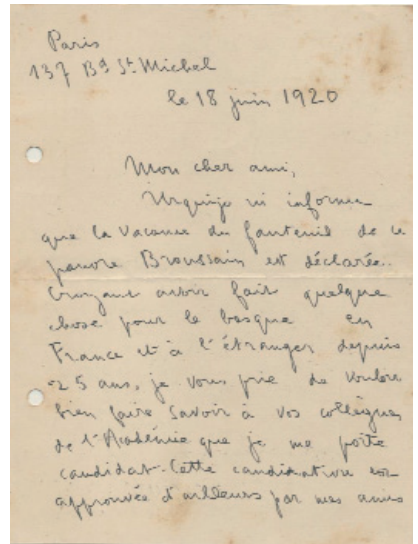 Paris
137 Bd St Michel
le 18 juin 1920
Mon cher ami,
Urquijo m'informe
que la vacance du fauteuil de ce
pauvre Broussain est déclarée.
Croyant avoir fait quelque
chose pour le basque en
France et à l'étranger depuis
25 ans, je vous prie de vouloir
bien faire savoir à vos collègues
de l'Académie que je me porte
candidat. Cette candidature est
approuvée d'ailleurs par mes amis